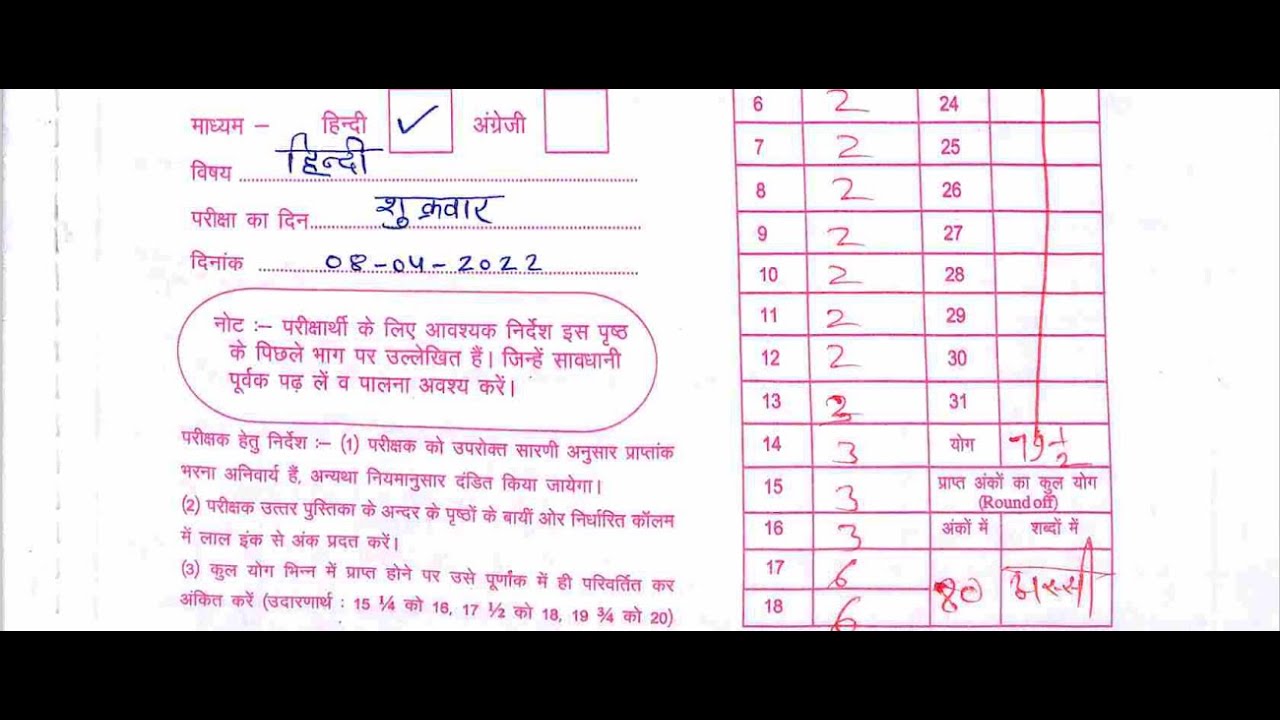 माध्यम – हिन्दी ✓ अंग्रेजी
विषय हिन्दी
परीक्षा का दिन शुक्रवार
दिनांक 08-04-2022
नोट :– परीक्षार्थी के लिए आवश्यक निर्देश इस पृष्ठ
के पिछले भाग पर उल्लेखित हैं। जिन्हें सावधानी
पूर्वक पढ़ लें व पालना अवश्य करें।
परीक्षक हेतु निर्देश :– (1) परीक्षक को उपरोक्त सारणी अनुसार प्राप्तांक
भरना अनिवार्य हैं, अन्यथा नियमानुसार दंडित किया जायेगा।
(2) परीक्षक उत्तर पुस्तिका के अन्दर के पृष्ठों के बायीं ओर निर्धारित कॉलम
में लाल इंक से अंक प्रदत करें।
(3) कुल योग भिन्न में प्राप्त होने पर उसे पूर्णांक में ही परिवर्तित कर
अंकित करें (उदारणार्थ : 15 ¼ को 16, 17 ½ को 18, 19 ¾ को 20)
6 2 24
7 2 25
8 2 26
9 2 27
10 2 28
11 2 29
12 2 30
13 2 31
14 3 योग 79 1/2
15 3 प्राप्त अंकों का कुल योग
(Round off)
16 3 अंकों में शब्दों में
17 6
80 अस्सी
18 6